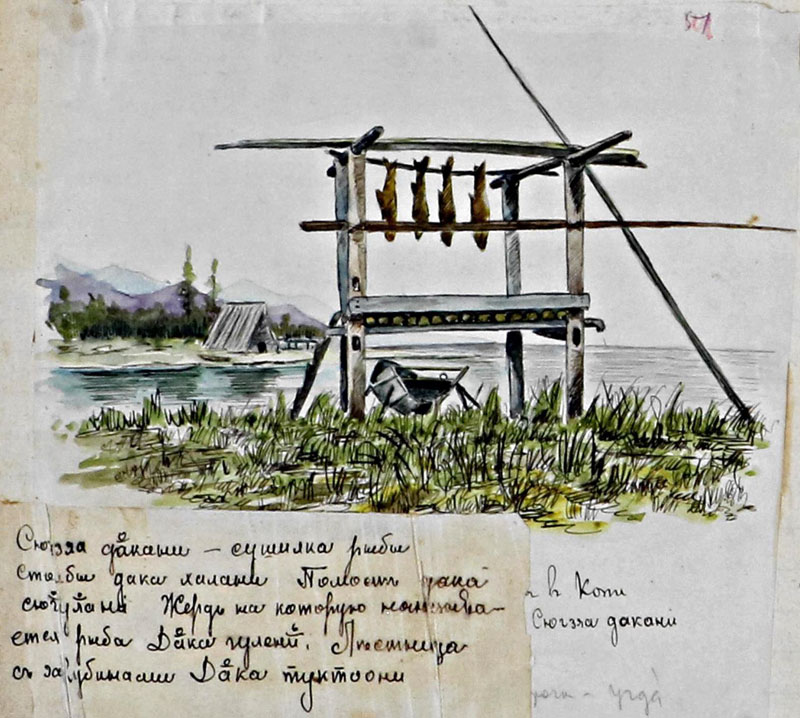 Сюгзя да̊кани – сушилка рыбы
Столбы дака халани Помостъ дака
сюгулани Жердь на которую нанизыва-
ется рыба Да̊ка гулени. Лѣстница
съ зарубинами Да̊ка туктони
въ Копи
Сюгзя дакани
угда